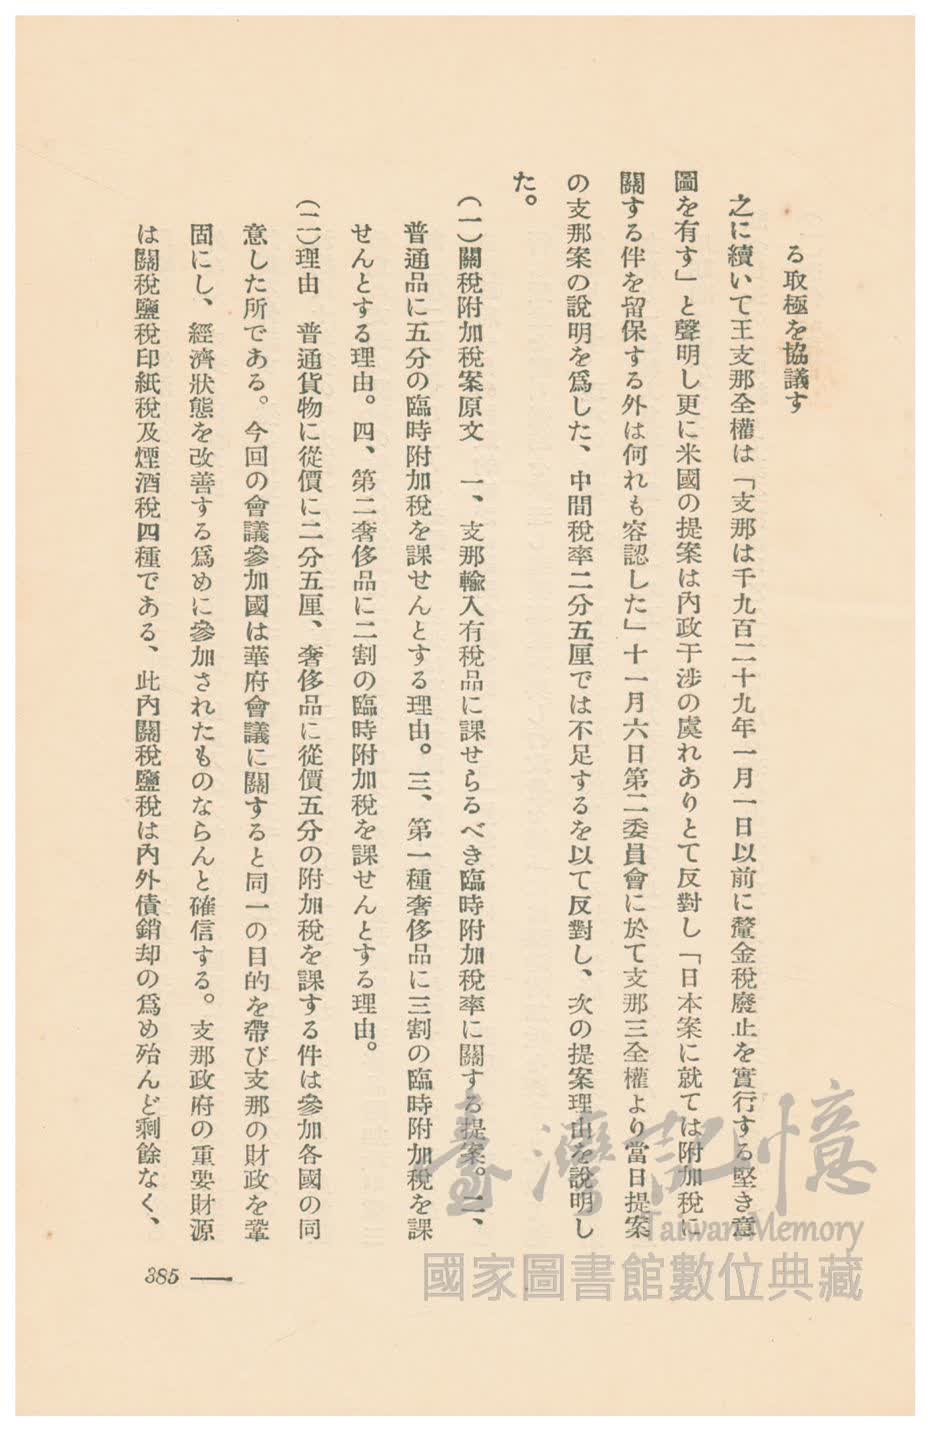 る取極を協議す
之に續いて王支那全權は「支那は千九百二十九年一月一日以前に釐金稅廢止を實行する堅き意
圖を有す」と聲明し更に米國の提案は內政干涉の虞れありとて反對し「日本案に就ては附加稅に
關する件を留保する外は何れも容認した」十一月六日第二委員會に於て支那三全權より當日提案
の支那案の說明を爲した、中間稅率二分五厘では不足するを以て反對し、次の提案理由を說明し
た。
(一)關稅附加稅案原文　一、支那輸入有稅品に課せらるべき臨時附加稅率に關する提案。二、
普通品に五分の臨時附加稅を課せんとする理由。三、第一種奢侈品に三割の臨時附加稅を課
せんとする理由。四、第二奢侈品に二割の臨時附加稅を課せんとする理由。
(二)理由　普通貨物に從價に二分五厘、奢侈品に從價五分の附加稅を課する件は參加各國の同
意した所である。今回の會議參加國は華府會議に關すると同一の目的を帶び支那の財政を鞏
固にし、經濟狀態を改善する爲めに參加されたものならんと確信する。支那政府の重要財源
は關稅鹽稅印紙稅及煙酒稅四種である、此內關稅鹽稅は內外債銷却の爲め殆んど剩餘なく、
385
臺灣記憶
Taiwan Memory
國家圖書館數位典藏